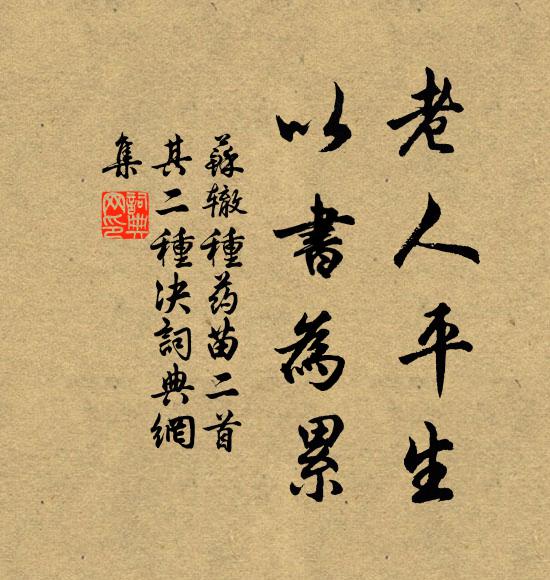 老人平生
以書為累
蘇辙種药苗二首
其二種决詞典網
集
詞典
网印